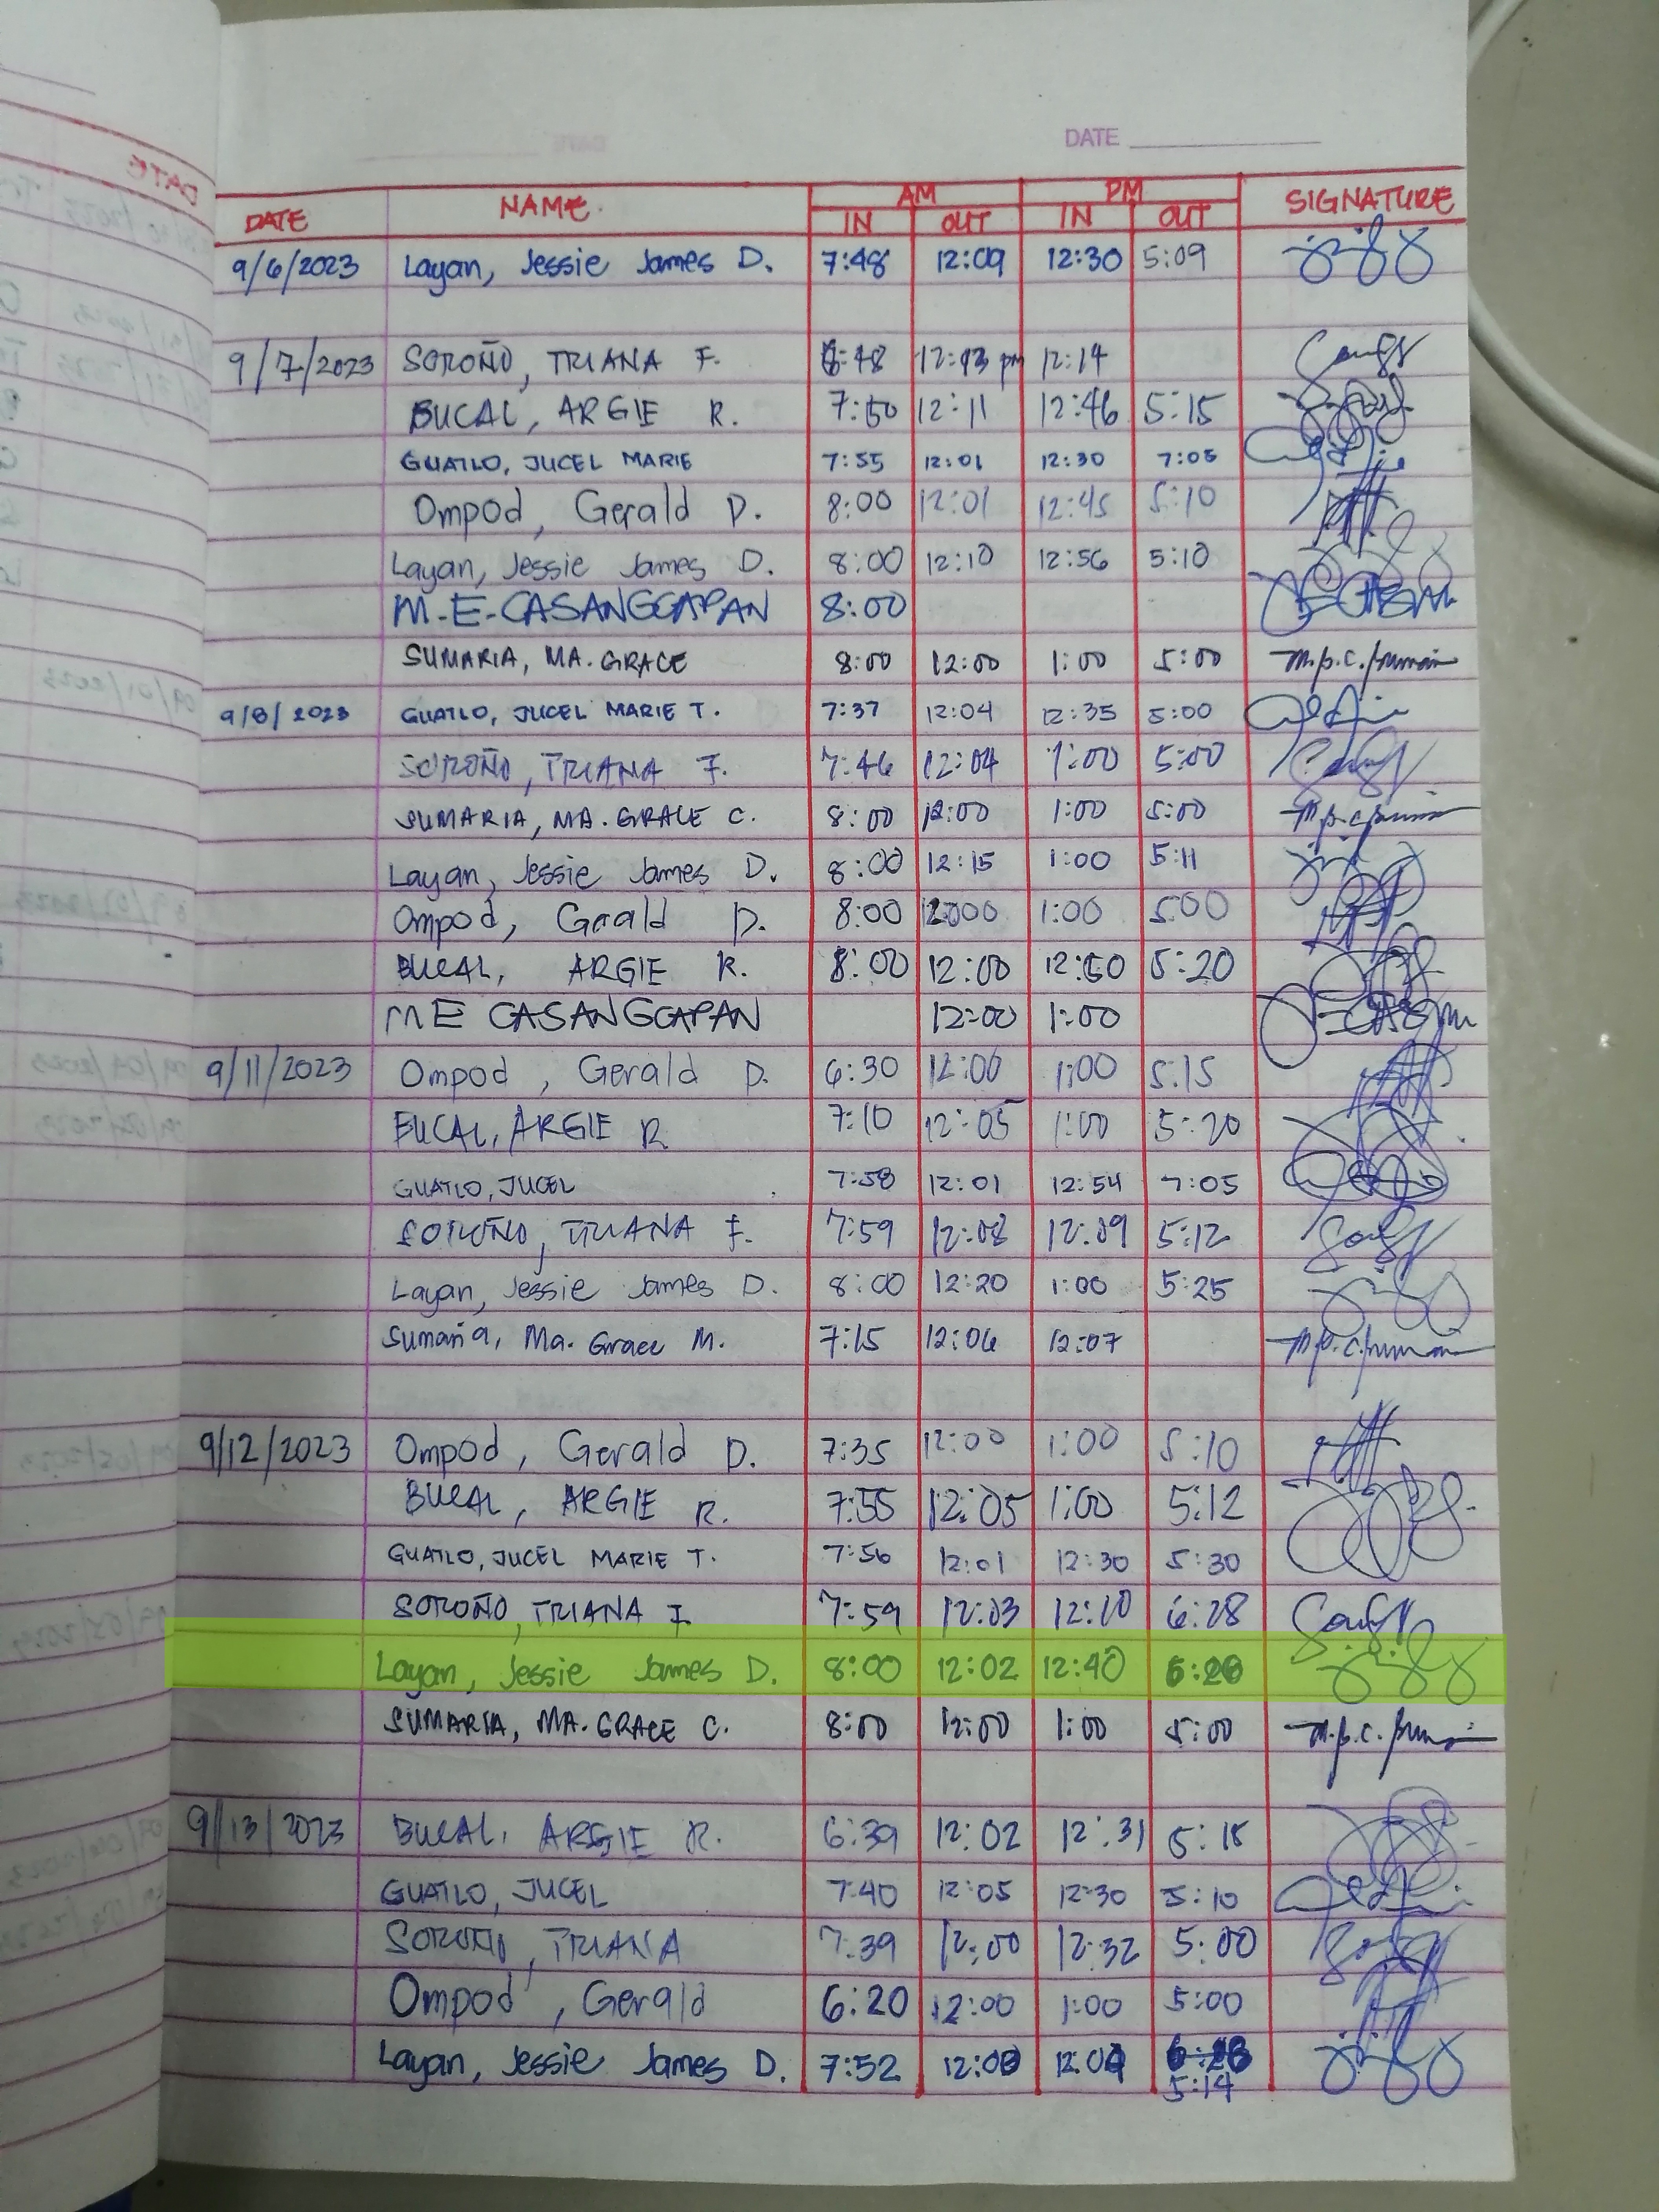 DATE
DATE NAME. AM PM SIGNATURE
IN OUT IN OUT
9/6/2023 Layan, Jessie James D. 7:48 12:09 12:30 5:09
9/7/2023 SOROÑO, TRIANA F. 12:13 pm 12:14
BUCAL, ARGIE R. 7:50 12:11 12:46 5:15
GUATLO, JUCEL MARIE 7:55 12:01 12:30 7:05
Ompod, Gerald D. 8:00 12:01 12:45 5:10
Layan, Jessie James D. 8:00 12:10 12:56 5:10
M.E. CASANGGAPAN 8:00
SUMARIA, MA. GRACE 8:00 12:00 1:00 5:00
9/8/2023 GUATLO, JUCEL MARIE T. 7:37 12:04 12:35 5:00
SOROÑO, TRIANA F. 7:46 12:04 1:00 5:00
SUMARIA, MA. GRACE C. 8:00 12:00 1:00 5:00
Layan, Jessie James D. 8:00 12:15 1:00 5:11
Ompod, Gerald D. 8:00 1:00 5:00
BUCAL, ARGIE R. 8:00 12:00 12:50 5:20
ME CASANGGAPAN 12:00 1:00
9/11/2023 Ompod, Gerald D. 6:30 12:00 1:00 5:15
BUCAL, ARGIE R 7:10 12:05 1:00 5:20
GUATLO, JUCEL 7:58 12:01 12:54 7:05
SOROÑO, TRIANA F. 7:59 12:08 12:09 5:12
Layan, Jessie James D. 8:00 12:20 1:00 5:25
Sumaria, Ma. Grace M. 7:15 12:06 12:07
9/12/2023 Ompod, Gerald D. 7:35 12:00 1:00 5:10
BUCAL, ARGIE R. 7:55 12:05 1:00 5:12
GUATLO, JUCEL MARIE T. 7:56 12:01 12:30 5:30
SOROÑO, TRIANA F. 7:59 12:03 12:10 6:28
Layan, Jessie James D. 8:00 12:02 12:40
SUMARIA, MA. GRACE C. 8:00 12:00 1:00 5:00
9/13/2023 BUCAL, ARGIE R. 6:39 12:02 12:31 5:15
GUATLO, JUCEL 7:40 12:05 12:30 5:10
SOROÑO, TRIANA 7:39 12:00 12:32 5:00
Ompod, Gerald 6:20 12:00 1:00 5:00
Layan, Jessie James D. 7:52
5:14